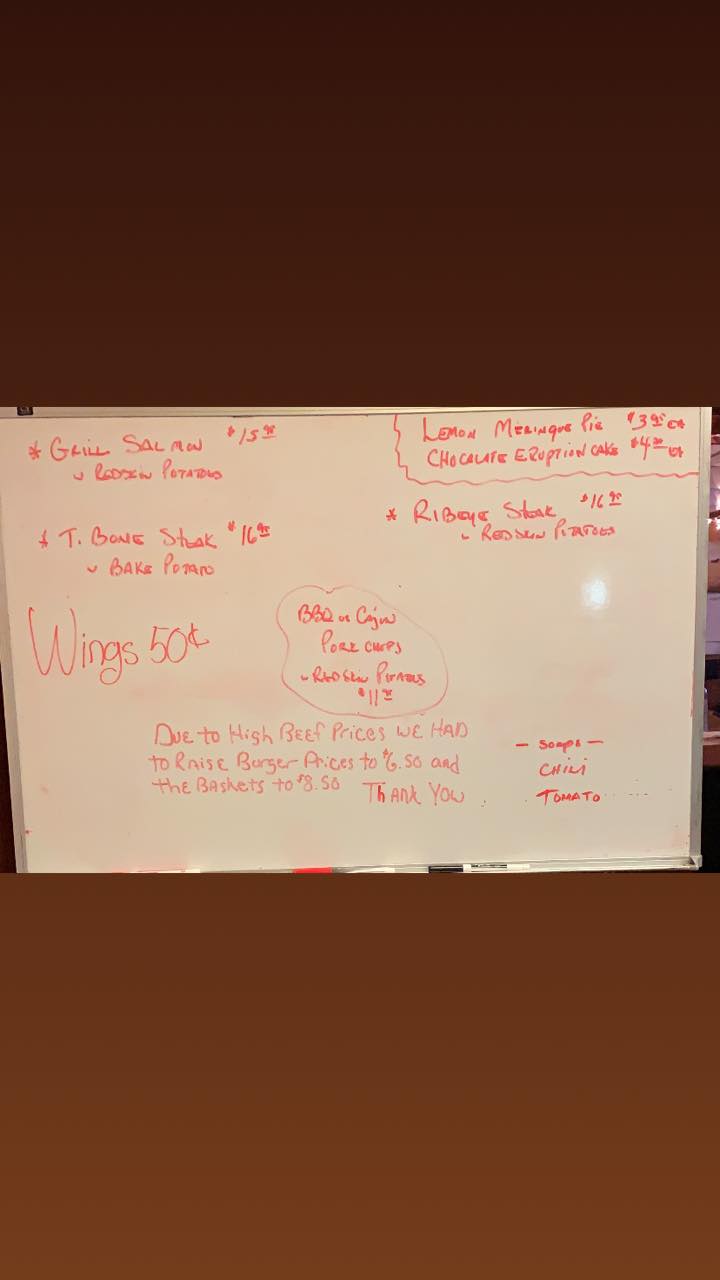 * GRILL SALMON $15.95
w REDSKIN POTATOES
LEMON MERINGUE PIE $3.95 EA
CHOCOLATE ERUPTION CAKE EA
* RIBEYE STEAK $16.95
w REDSKIN POTATOES
* T. BONE STEAK $16.95
w BAKE POTATO
Wings 50¢
BBQ or Cajun
PORK CHOPS
w REDSKIN POTATOES
Due to High Beef Prices WE HAD
to Raise Burger Prices to $6.50 and
the Baskets to $8.50 Thank You
- Soups -
CHILI
TOMATO